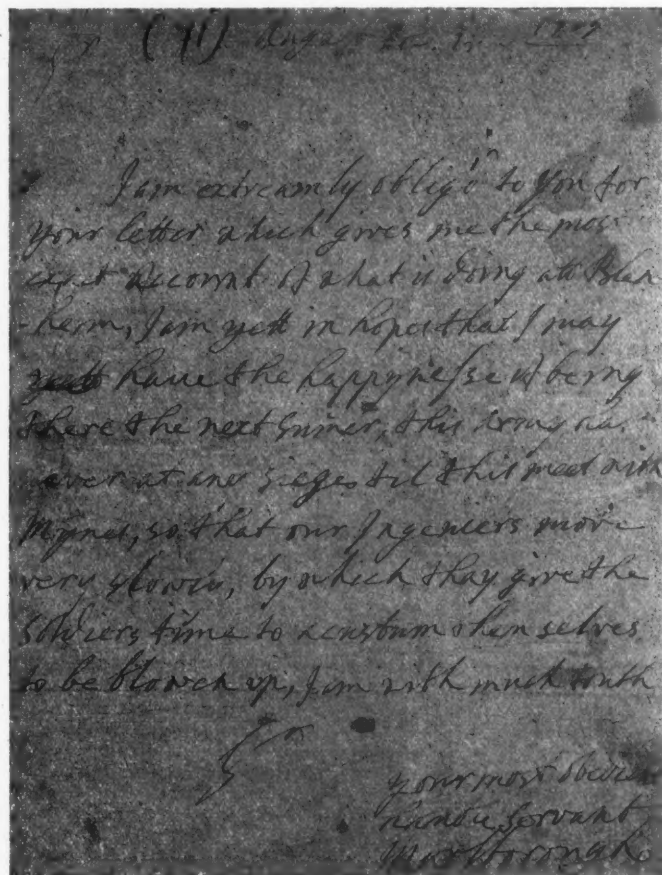 Sr (71) Augst
I am extreamly oblig'd to you for
your letter which gives me the most
exact account of what is doing att Blen
-heim, I am yett in hopes that I may
yett haue the happynesse of being
there the next Sumer, this army
never at any siege til this meet with
Mynes, so that our Ingeniers move
very slowly, by which thay give the
soldiers time to acustum them selves
to be blowen up, I am with much truth
Sr
your most obedient
humble servant
Marlborough